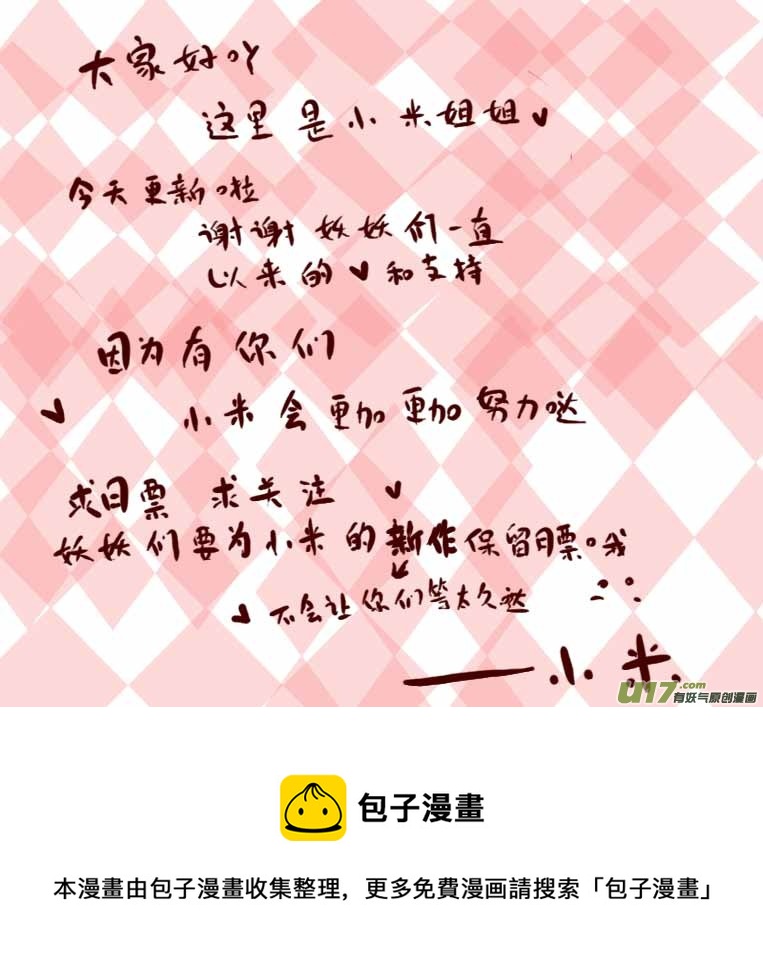 大家好吖
这里是小米姐姐
今天更新啦
谢谢妖妖们一直
以来的 和支持
因为有你们
小米会更加更加努力哒
求日票 求关注
妖妖们要为小米的新作保留月票哦
不会让你们等太久哒
——小米
U17.com
有妖气原创漫画
包子漫畫
本漫畫由包子漫畫收集整理，更多免費漫画請搜索「包子漫畫」